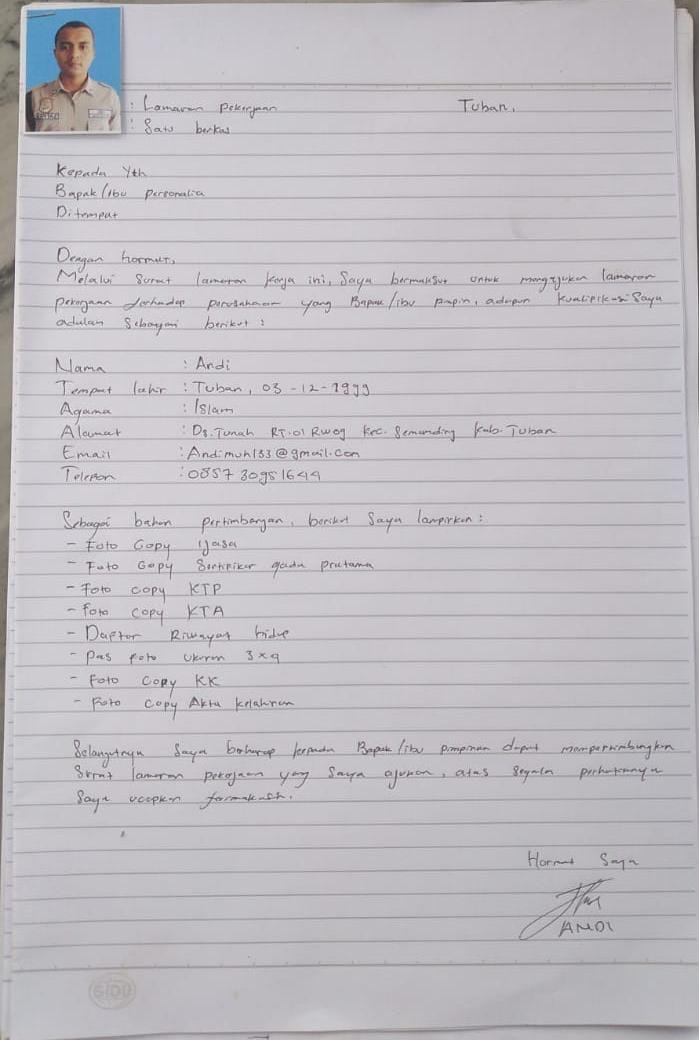 : Lamaran pekerjaan Tuban,
: Satu berkas
Kepada Yth
Bapak/Ibu Personalia
Ditempat
Dengan hormat,
Melalui surat lamaran kerja ini, saya bermaksut untuk mengajukan lamaran
pekerjaan terhadap perusahaan yang Bapak/ibu pimpin, adapun kualipikasi saya
adalah sebagai berikut :
Nama : Andi
Tempat lahir : Tuban, 03-12-1999
Agama : Islam
Alamat : Ds. Tunah RT.01 RW09 Kec. Semanding Kab. Tuban
Email : Andimuh133@gmail.com
Telepon : 0857 3095 1644
Sebagai bahan pertimbangan, berikut saya lampirkan :
- Foto Copy ijasa
- Foto Copy Sertipikat gada pratama
- Foto copy KTP
- Foto copy KTA
- Daptar Riwayat hidup
- Pas foto ukuran 3x4
- Foto Copy KK
- Foto Copy Akta kelahiran
Selanjutnya saya berharap kepada Bapak/ibu pimpinan dapat mempertimbangkan
surat lamaran pekerjaan yang saya ajukan, atas segala perhatianya
saya ucapkan terimakasih.
Hormat Saya
ANDI
SIDU